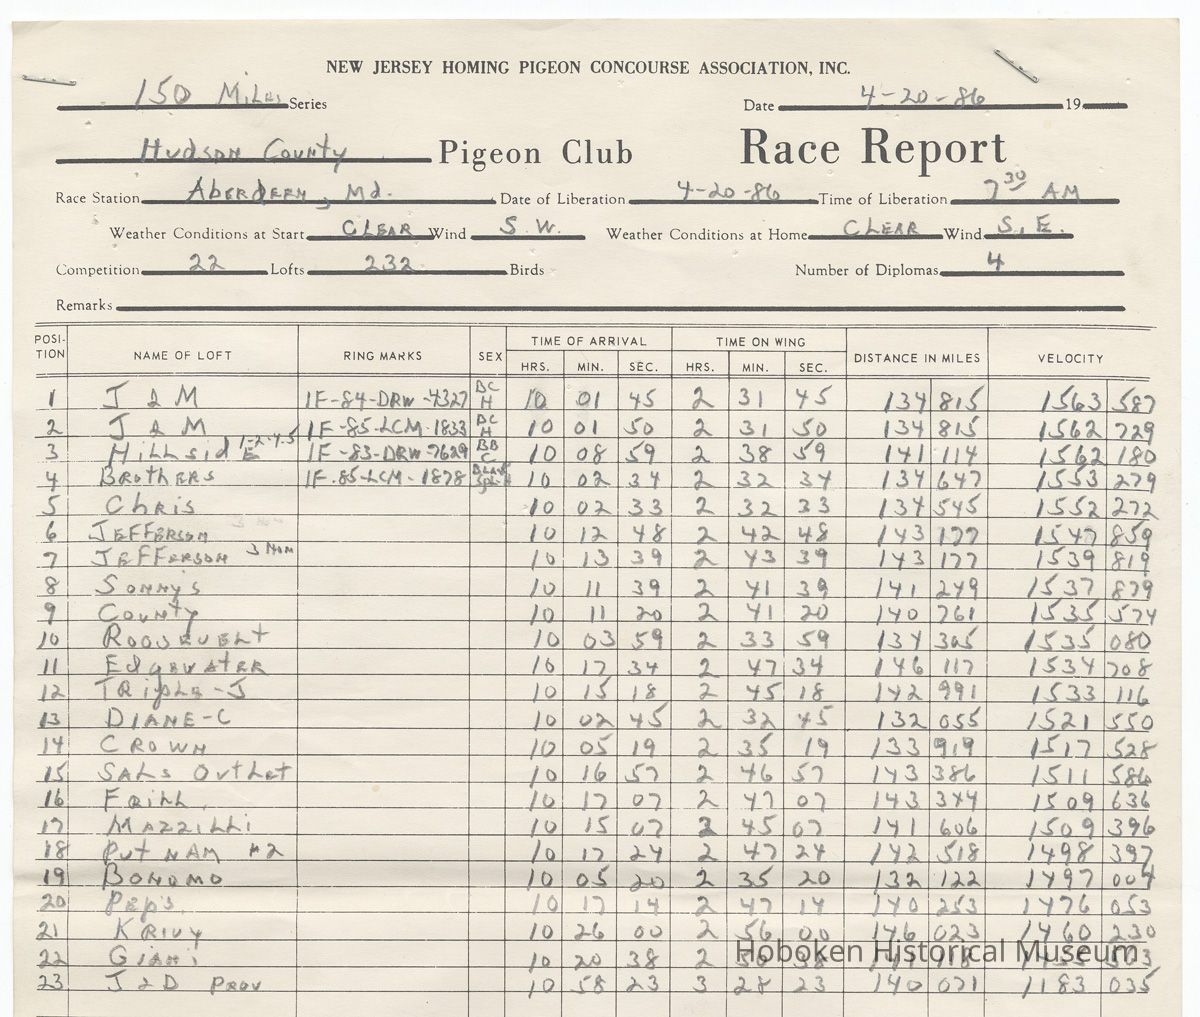 NEW JERSEY HOMING PIGEON CONCOURSE ASSOCIATION, INC.
150 Miles Series Date 4-20-86 19
Hudson County Pigeon Club Race Report
Race Station Aberdeen, Md. Date of Liberation 4-20-86 Time of Liberation 7 30 AM
Weather Conditions at Start CLEAR Wind S.W. Weather Conditions at Home CLEAR Wind S.E.
Competition 22 Lofts 232 Birds Number of Diplomas 4
Remarks
POSI-TION NAME OF LOFT RING MARKS SEX TIME OF ARRIVAL HRS. MIN. SEC. TIME ON WING HRS. MIN. SEC. DISTANCE IN MILES VELOCITY
1 J & M IF-84-DRW-4327 BC H 10 01 45 2 31 45 134 815 1563 587
2 J & M IF-85-LCM-1833 BC H 10 01 50 2 31 50 134 815 1562 729
3 Hillside 1-2-4.5 IF-83-DRW-7629 BB C 10 08 59 2 38 59 141 114 1562 180
4 Brothers IF.85-LCM-1878 10 02 34 2 32 34 134 647 1553 279
5 Chris 10 02 33 2 32 33 134 545 1552 272
6 JEFFERSON 10 12 48 2 42 48 143 177 1547 859
7 JEFFERSON 3 Nom 10 13 39 2 43 39 143 177 1539 819
8 Sonnys 10 11 39 2 41 39 141 249 1537 879
9 County 10 11 20 2 41 20 140 761 1535 574
10 ROOSEVELT 10 03 59 2 33 59 134 305 1535 080
11 Edgewater 10 17 34 2 47 34 146 117 1534 708
12 TRiple-J 10 15 18 2 45 18 142 991 1533 116
13 DIANE-C 10 02 45 2 32 45 132 055 1521 550
14 CROWN 10 05 19 2 35 19 133 919 1517 528
15 SALs OutLet 10 16 57 2 46 57 143 386 1511 586
16 FRILL 10 17 07 2 47 07 143 344 1509 636
17 MAZZILLI 10 15 07 2 45 07 141 606 1509 396
18 PUTNAM #2 10 17 24 2 47 24 142 518 1498 397
19 BONOMO 10 05 20 2 35 20 132 122 1497 004
20 Pep's 10 17 14 2 47 14 140 253 1476 053
21 KRIVY 10 26 00 2 56 00 146 023 1460 230
22 Giani 10 20 38 2
23 J & D Prov 10 58 23 3 28 23 140 071 1183 035
Hoboken Historical Museum